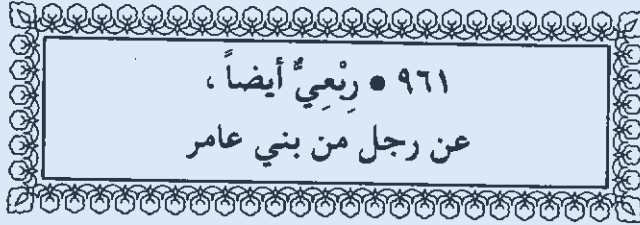 ٩٦١ • رِبْعِيٌّ أيضاً ،
عن رجل من بني عامر